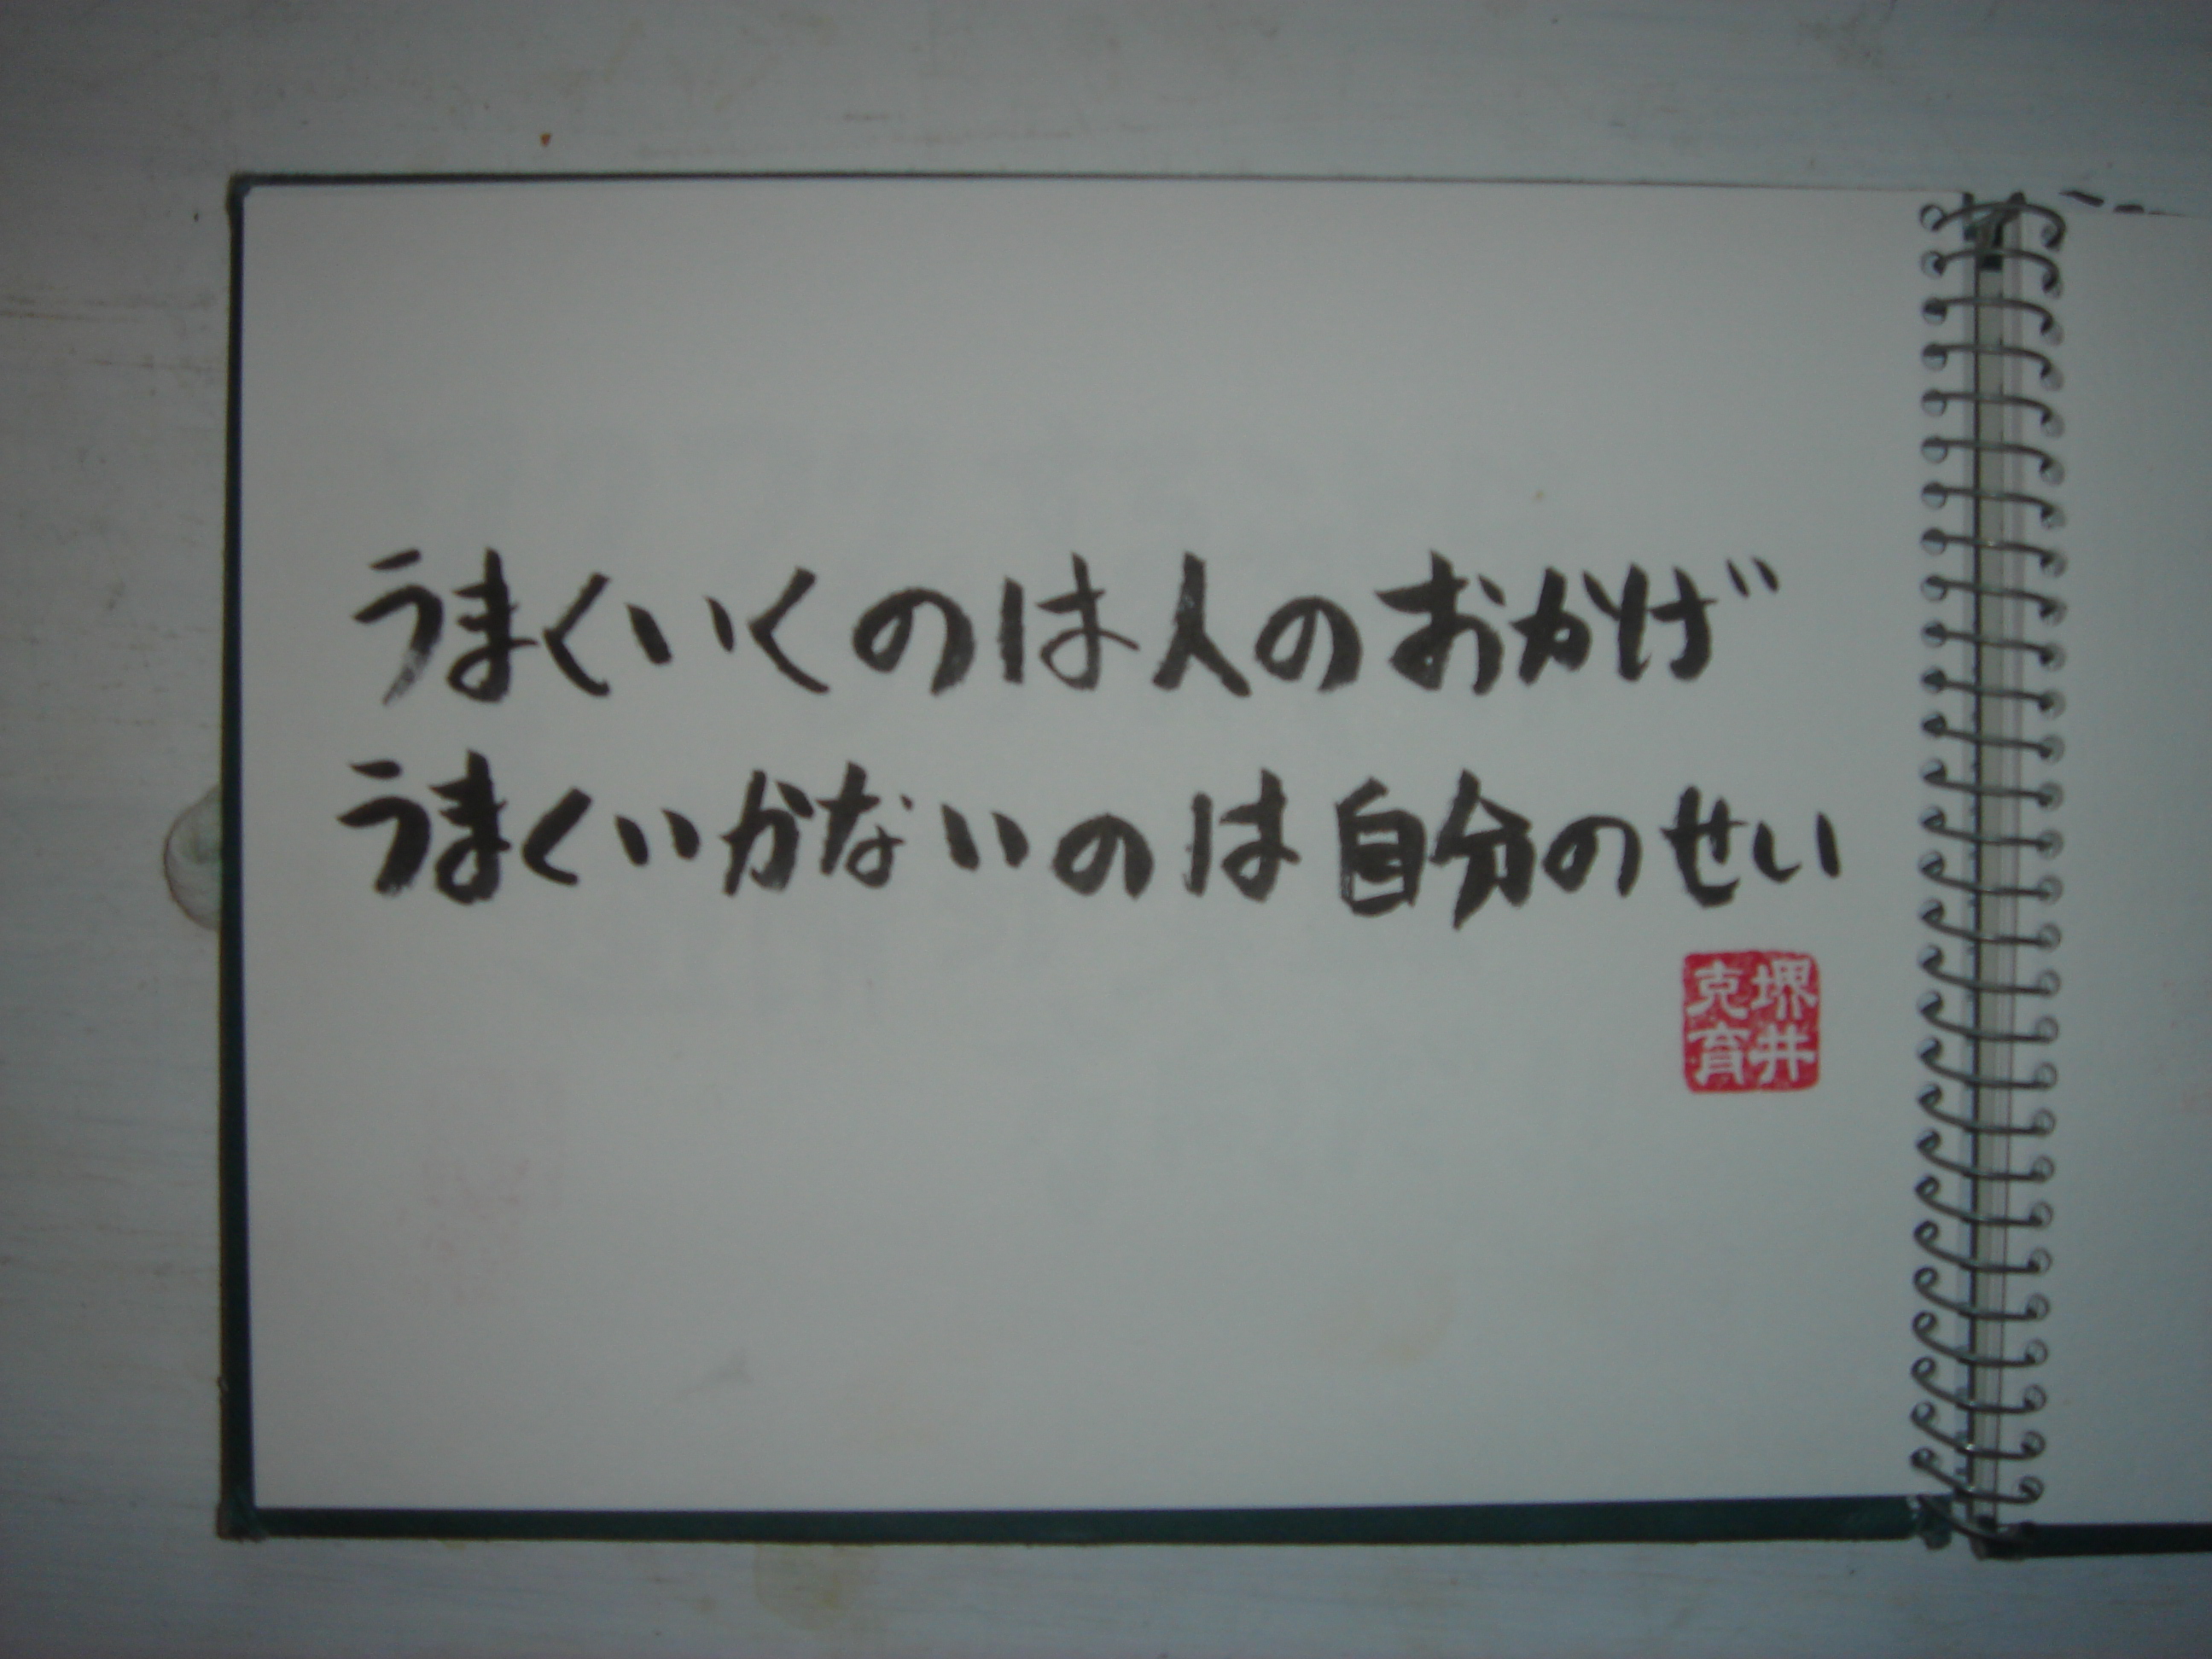 うまくいくのは人のおかげ
うまくいかないのは自分のせい
堺井
克育